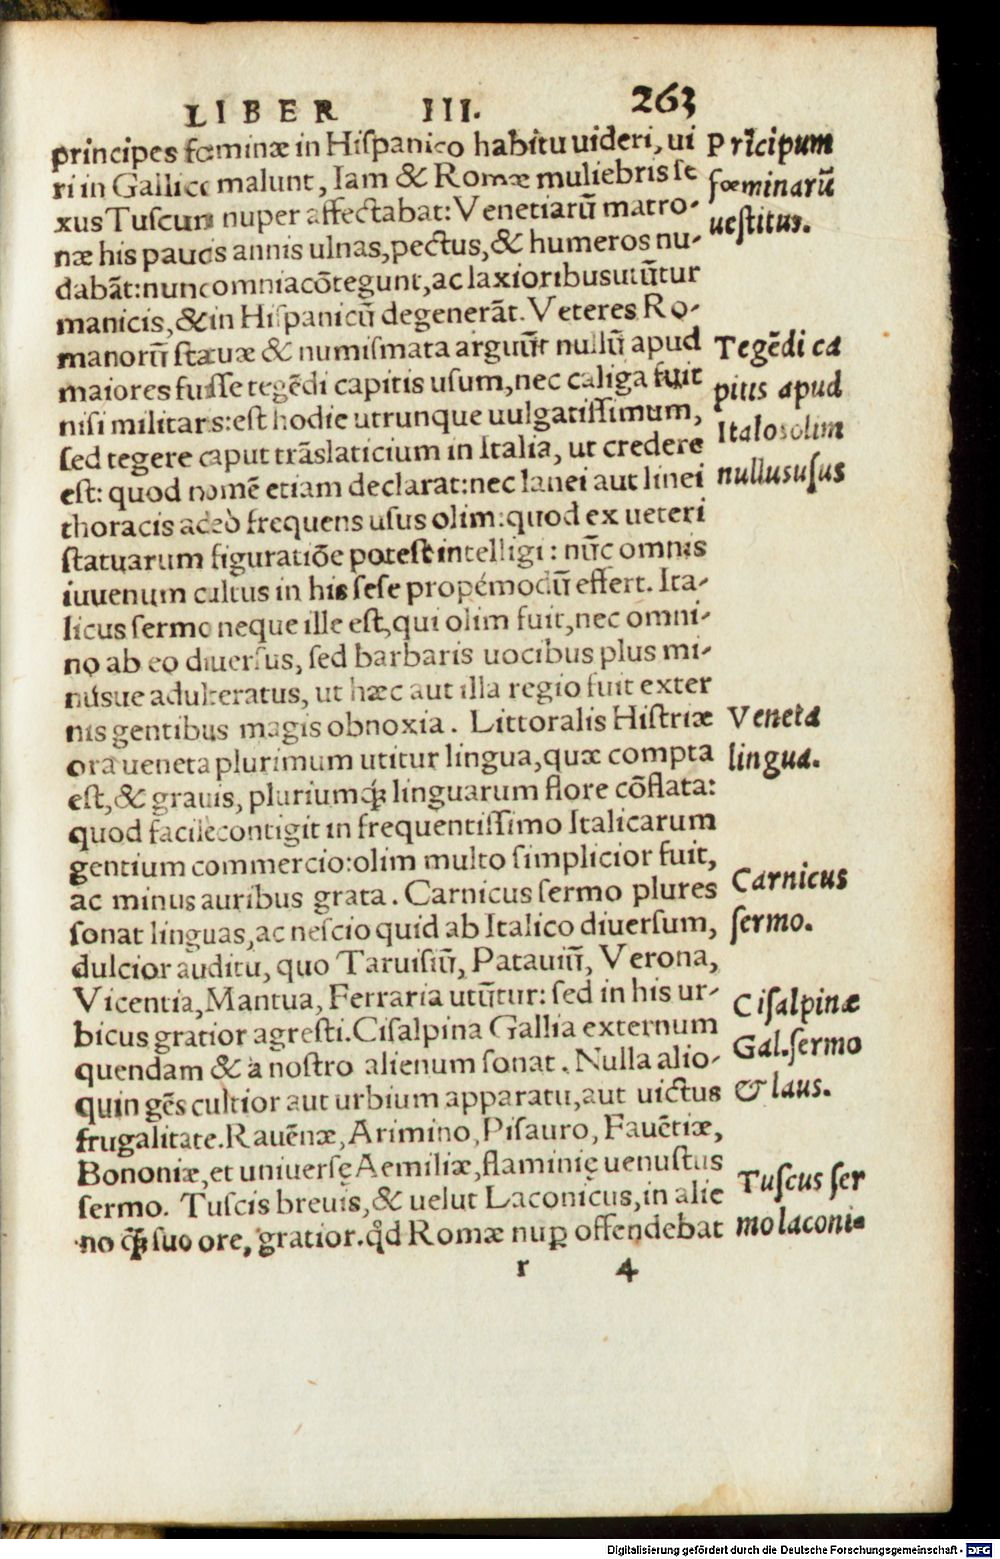 LIBER III. 263
principes fœminæ in Hiſpanico habitu uideri, ui
ri in Gallico malunt, Iam & Romæ muliebris ſe
xus Tuſcum nuper affectabat: Venetiarū matro-
næ his paucis annis ulnas, pectus, & humeros nu-
dabāt: nunc omnia cōtegunt, ac laxioribus utūtur
manicis, & in Hiſpanicū degenerāt. Veteres Ro-
manorū ſtatuæ & numiſmata arguūt nullū apud
maiores fuiſſe tegēdi capitis uſum, nec caliga fuit
niſi militaris: eſt hodie utrunque uulgatiſſimum,
ſed tegere caput trāslaticium in Italia, ut credere
eſt: quod nomē etiam declarat: nec lanei aut linei
thoracis adeò frequens uſus olim: quod ex ueteri
ſtatuarum figuratiōe poteſt intelligi: nūc omnis
iuuenum cultus in his ſeſe propémodū effert. Ita-
licus ſermo neque ille eſt, qui olim fuit, nec omni-
no ab eo diuerſus, ſed barbaris uocibus plus mi-
nuśue adulteratus, ut hæc aut illa regio fuit exter
nis gentibus magis obnoxia. Littoralis Hiſtriæ
ora ueneta plurimum utitur lingua, quæ compta
eſt, & grauis, pluriumq́; linguarum flore cōflata:
quod facilè contigit in frequentiſſimo Italicarum
gentium commercio: olim multo ſimplicior fuit,
ac minus auribus grata. Carnicus ſermo plures
ſonat linguas, ac neſcio quid ab Italico diuerſum,
dulcior auditu, quo Taruiſiū, Patauiū, Verona,
Vicentia, Mantua, Ferraria utūtur: ſed in his ur-
bicus gratior agreſti. Ciſalpina Gallia externum
quendam & à noſtro alienum ſonat. Nulla alio-
quin gēs cultior aut urbium apparatu, aut uictus
frugalitate. Rauēnæ, Arimino, Piſauro, Fauētiæ,
Bononiæ, et uniuerſę Aemiliæ, flaminię uenuſtus
ſermo. Tuſcis breuis, & uelut Laconicus, in alie
no q̃ ſuo ore, gratior. qd̉ Romæ nuꝑ offendebat
r 4
Prīcipum
fœminarū
ueſtitus.
Tegēdi ca
pitis apud
Italos olim
nullus uſus
Veneta
lingua.
Carnicus
ſermo.
Ciſalpinæ
Gal. ſermo
& laus.
Tuſcus ſer
mo laconi-
Digitalisierung gefördert durch die Deutsche Forschungsgemeinschaft - DFG